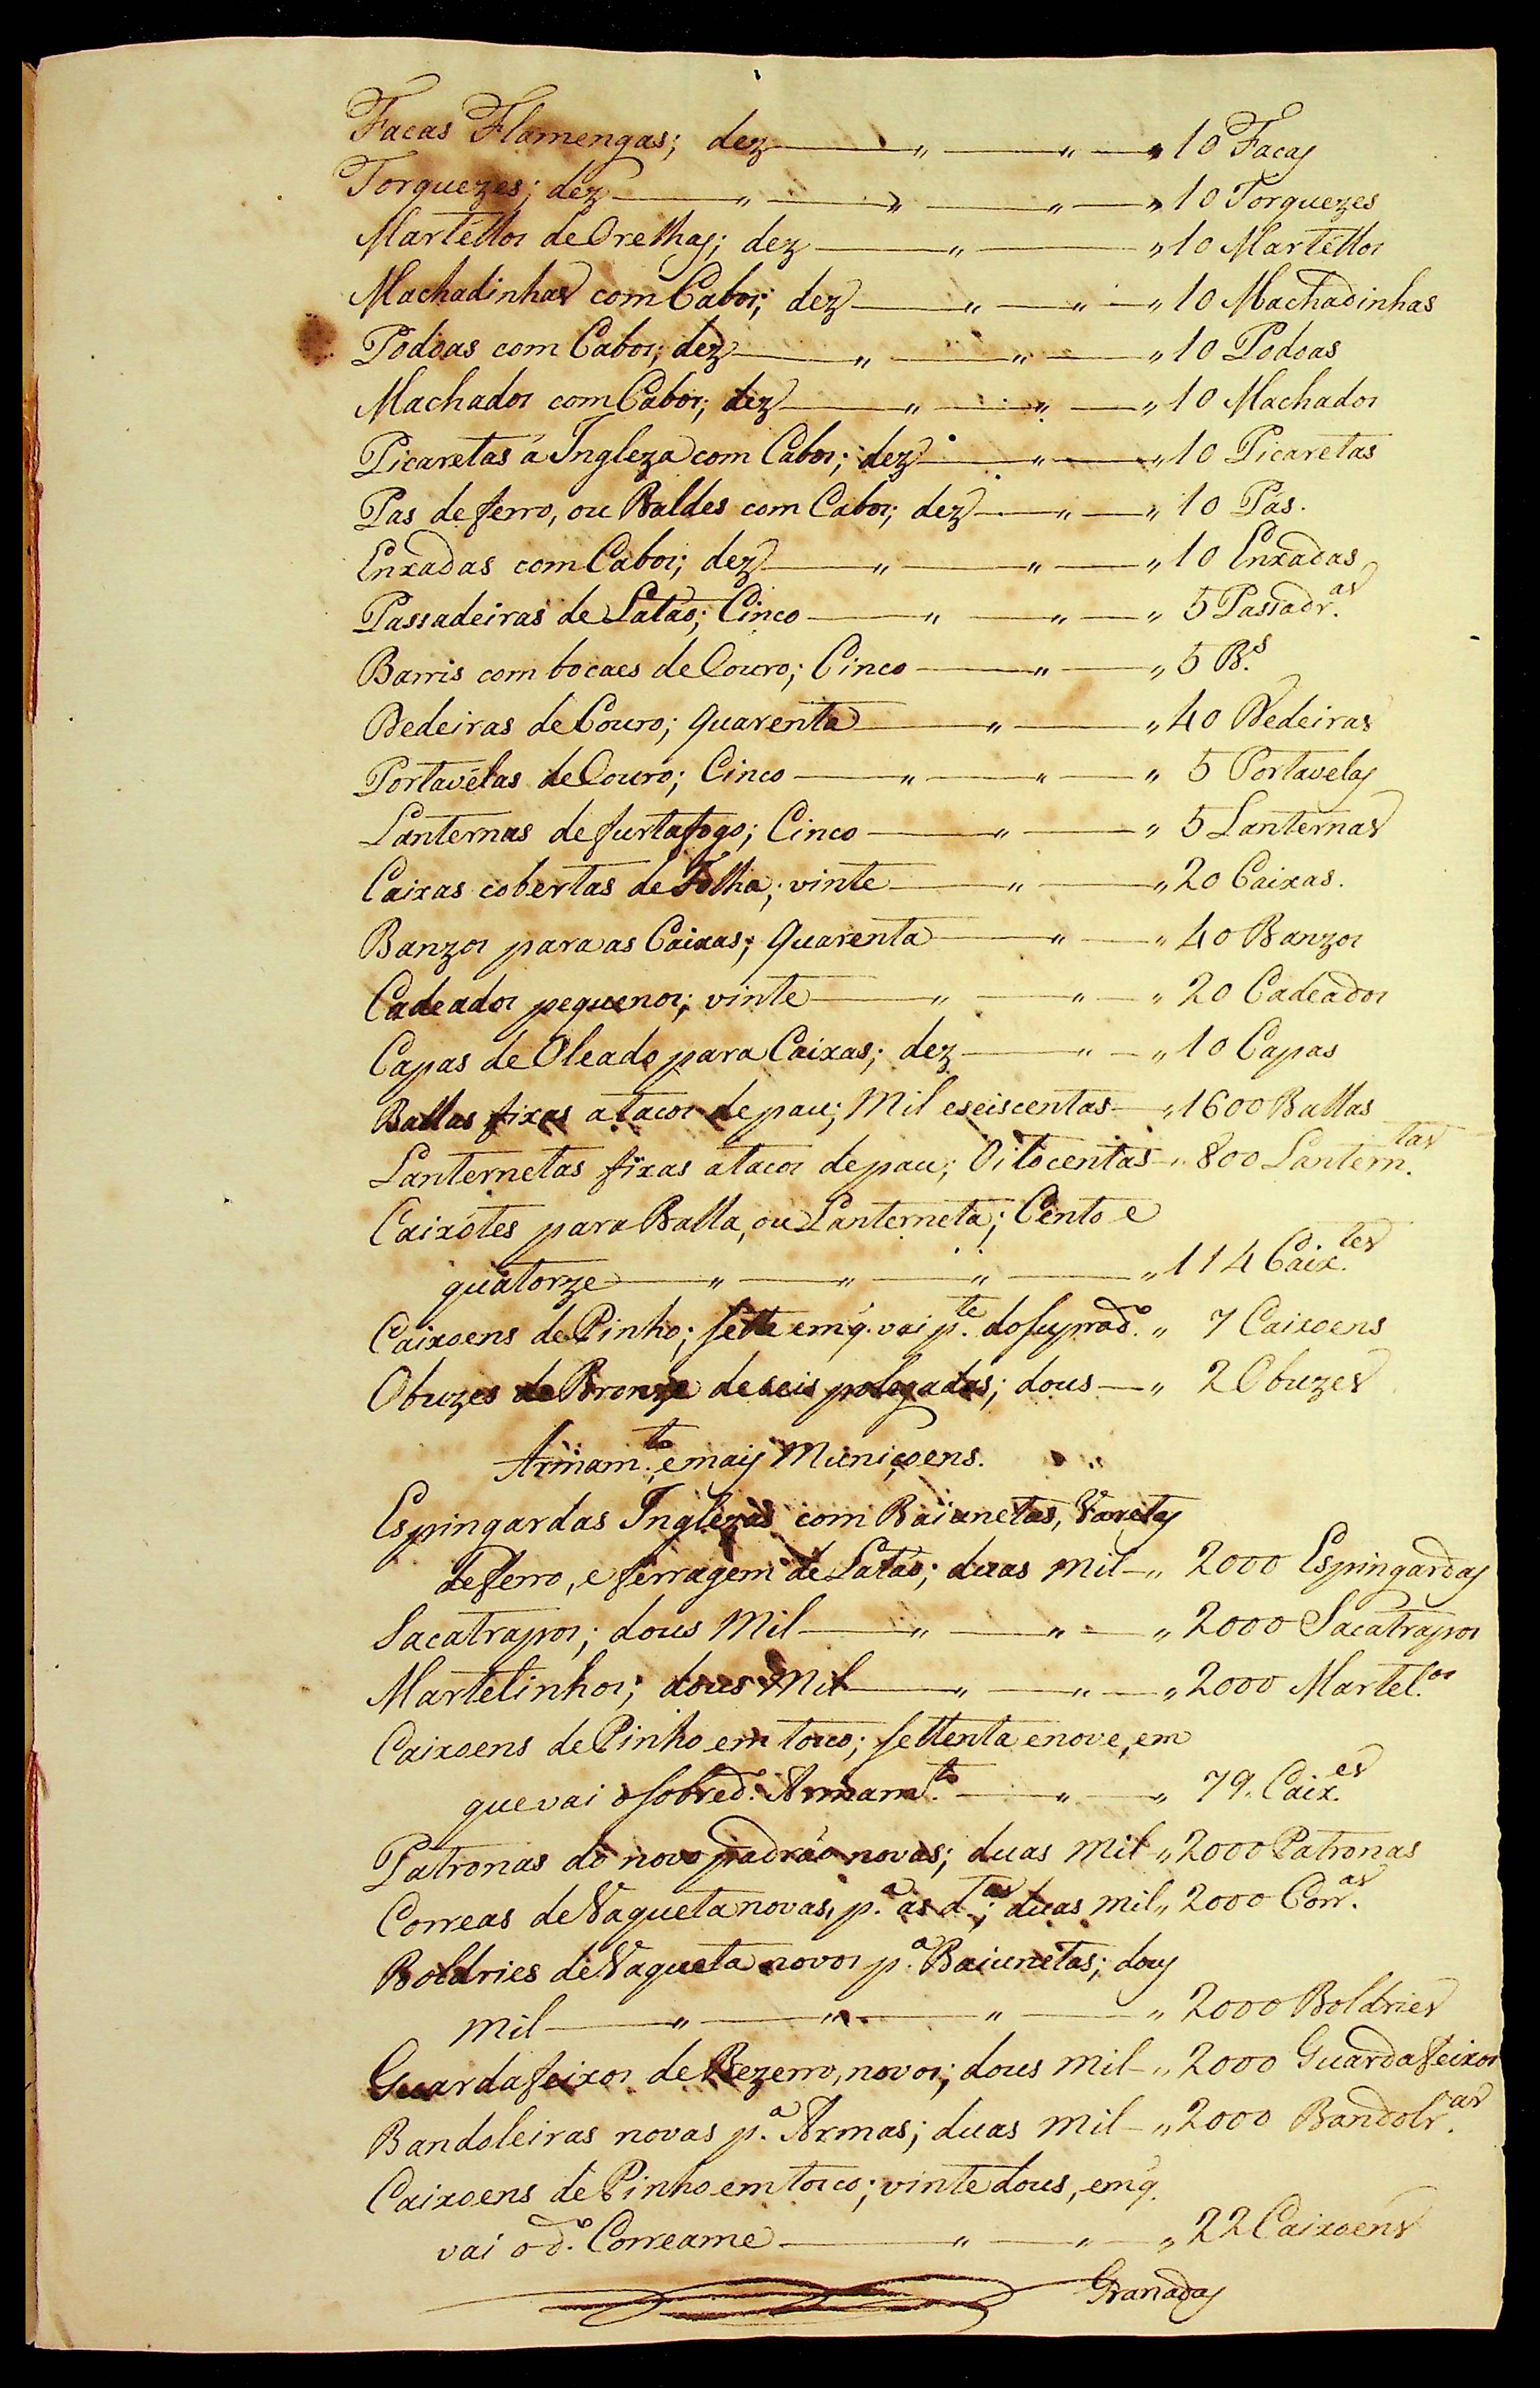 Facas Flamengas; dez —— " —— " — " 10 Facas
Torquezes; dez —— " —— " —— " — " 10 Torquezes
Martellos de Orelhas; dez —— " —— " 10 Martellos
Machadinhas com Cabos; dez —— " — " — " 10 Machadinhas
Podoas com Cabos; dez —— " —— " — " 10 Podoas
Machados com Cabos; dez —— " —— " — " 10 Machados
Picaretas á Ingleza com Cabos; dez —— " —— " 10 Picaretas
Pas de ferro, ou Baldes com Cabos; dez —— " — " 10 Pás.
Enxadas com Cabos; dez —— " —— " — " 10 Enxadas
Passadeiras de Latão; Cinco —— " —— " — " 5 Passadr.as
Barris com bocaes de Couro; Cinco —— " — " 5 B.s
Dedeiras de Couro; quarenta —— " —— " 40 Dedeiras
Portavelas de Couro; Cinco —— " —— " — " 5 Portavelas
Lanternas de furtafogo; Cinco —— " —— " 5 Lanternas
Caixas cobertas de Folha; vinte —— " —— " 20 Caixas.
Banzos para as Caixas; quarenta —— " — " 40 Banzos
Cadeados pequenos; vinte —— " —— " — " 20 Cadeados
Capas de Oleado para Caixas; dez —— " — " 10 Capas
Ballas fixas a tacos de pau; Mil e seiscentas — " 1600 Ballas
Lanternetas fixas a tacos de pau; Oitocentas — " 800 Lantern.tas
Caixotes para Balla, ou Lanterneta; Cento e
quatorze —— " —— " —— " —— " 114 Caix.tes
Caixoens de Pinho; sette em q. vai p.te do suprad.o " 7 Caixoens
Obuzes de Bronze de seis polegadas; dous — " 2 Obuzes
Armam.to, e mais Muniçoens.
Espingardas Inglezas com Baiunetas, Varetas
de ferro, e ferragem de Latão; duas mil — " 2000 Espingardas
Sacatrapos; dous Mil —— " —— " — " 2000 Sacatrapos
Martelinhos; dous Mil —— " —— " — " 2000 Martel.os
Caixoens de Pinho em tosco; settenta e nove, em
que vai o sobred.o Armam.to —— " — " 79. Caix.es
Patronas do novo padrão novas; duas mil " 2000 Patronas
Correas de Vaqueta novas, p.a as d.tas; duas mil " 2000 Corr.as
Boldries de Vaqueta novos p.a Baiunetas; dous
mil —— " —— " —— " —— " 2000 Boldries
Guardafeixos de Bezerro, novos; dous mil — " 2000 Guardafeixos
Bandoleiras novas p.a Armas; duas mil — " 2000 Bandolr.as
Caixoens de Pinho em tosco; vinte dous, em q.
vai o d.o Correame —— " —— " — " 22 Caixoens
Granadas